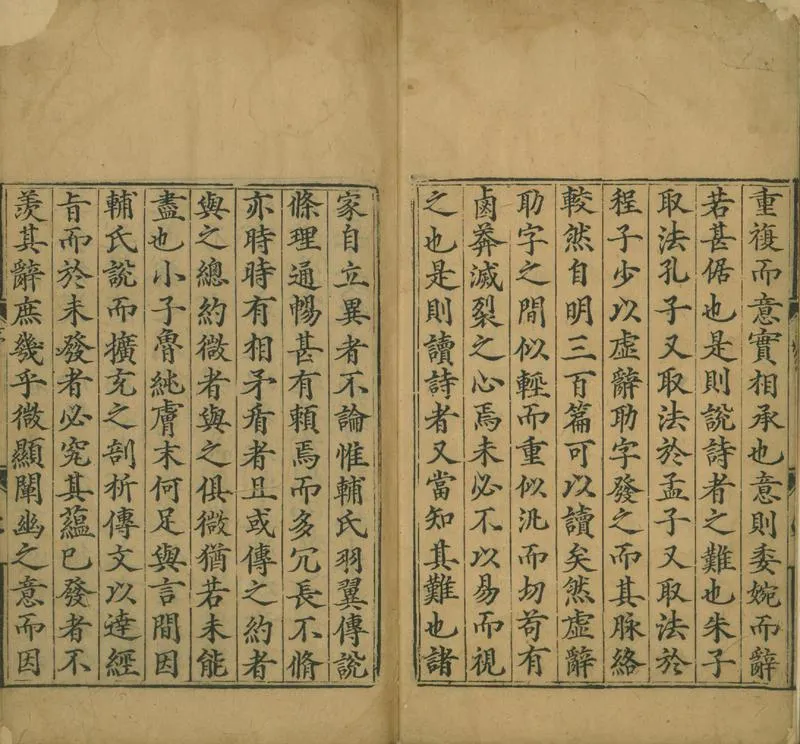 重複而意實相承也意則委婉而辭
若甚倨也是則說詩者之難也朱子
取法孔子又取法於孟子又取法於
程子少以虛辭助字發之而其脉絡
較然自明三百篇可以讀矣然虛辭
助字之間似輕而重似汎而切苟有
鹵莽滅裂之心焉未必不以易而視
之也是則讀詩者又當知其難也諸
家自立異者不論惟輔氏羽翼傳說
條理通暢甚有賴焉而多冗長不脩
亦時時有相矛盾者且或傳之約者
與之緫約微者與之俱微猶若未能
盡也小子魯純膚末何足與言間因
輔氏說而擴充之剖析傳文以達經
旨而於未發者必究其蘊已發者不
羨其辭庶幾乎微顯闡幽之意而因